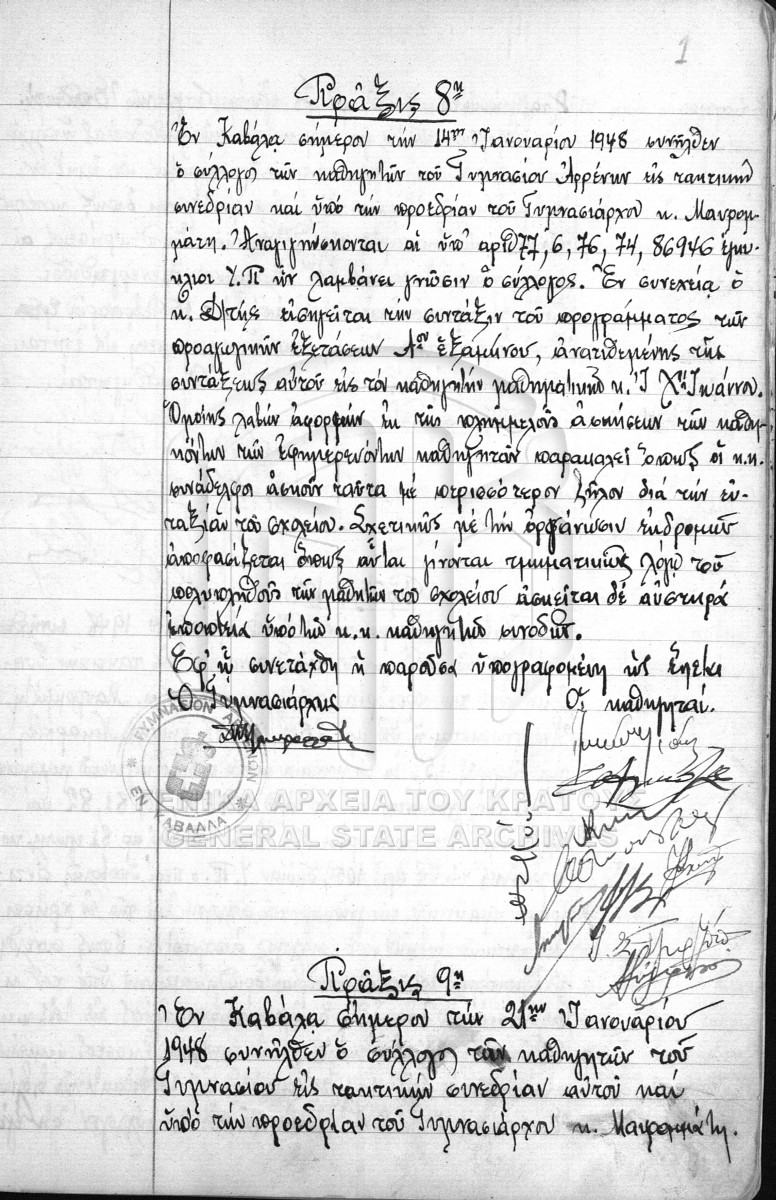 1
Πρᾶξις 8η
Ἐν Καβάλᾳ σήμερον τὴν 14ην Ἰανουαρίου 1948 συνῆλθεν
ὁ σύλλογος τῶν καθηγητῶν τοῦ Γυμνασίου Ἀρρένων εἰς τακτικὴν
συνεδρίαν καὶ ὑπὸ τὴν προεδρίαν τοῦ Γυμνασιάρχου κ. Μαυρομ-
μάτη. Ἀναγιγνώσκονται αἱ ὑπ' ἀριθ 77, 6, 76, 74, 86946 ἐγκύ-
κλιοι Υ.Π ὧν λαμβάνει γνῶσιν ὁ σύλλογος. Ἐν συνεχείᾳ ὁ
κ. Δ/τής εἰσηγεῖται τὴν συντάξιν τοῦ προγράμματος τῶν
προαγωγικῶν ἐξετάσεων Αου ἑξαμήνου, ἀνατιθεμένης τῆς
συντάξεως αὐτοῦ εἰς τὸν καθηγητὴν μαθηματικῶν κ. Ἰ Χ"Ἰωάννου.
Ὁμοίως λαβὼν ἀφορμὴν ἐκ τῆς πλημμελοῦς ἀσκήσεων τῶν καθη-
κόντων τῶν ἐφημερευόντων καθηγητῶν παρακαλεῖ ὅπως οἱ κ.κ.
συνάδελφοι ἀσκοῦν ταῦτα μὲ περισσότερον ζῆλον διὰ τὴν εὐ-
ταξίαν τοῦ σχολείου. Σχετικῶς μὲ τὴν ὀργάνωσιν ἐκδρομῶν
ἀποφασίζεται ὅπως αὗται γίνονται τμηματικῶς λόγῳ τοῦ
πολυπληθοῦς τῶν μαθητῶν τοῦ σχολείου ἀσκεῖται δὲ αὐστηρὰ
ἐποπτεία ὑπὸ τῶν κ.κ. καθηγητῶν συνοδῶν.
Ἐφ' ᾧ συνετάχθη ἡ παροῦσα ὑπογραφομένη ὡς ἕπεται
Ὁ Γυμνασιάρχης Οἱ καθηγηταί.
ΓΥΜΝΑΣΙΟΝ ΑΡΡΕΝΩΝ
ΕΝ ΚΑΒΑΛΛΑ
ΓΕΝΙΚΑ ΑΡΧΕΙΑ ΤΟΥ ΚΡΑΤΟΥΣ
GENERAL STATE ARCHIVES
Πρᾶξις 9η
Ἐν Καβάλᾳ σήμερον τὴν 21ην Ἰανουαρίου
1948 συνῆλθεν ὁ σύλλογος τῶν καθηγητῶν τοῦ
Γυμνασίου εἰς τακτικὴν συνεδρίαν αὐτοῦ καὶ
ὑπὸ τὴν προεδρίαν τοῦ Γυμνασιάρχου κ. Μαυρομμάτη.